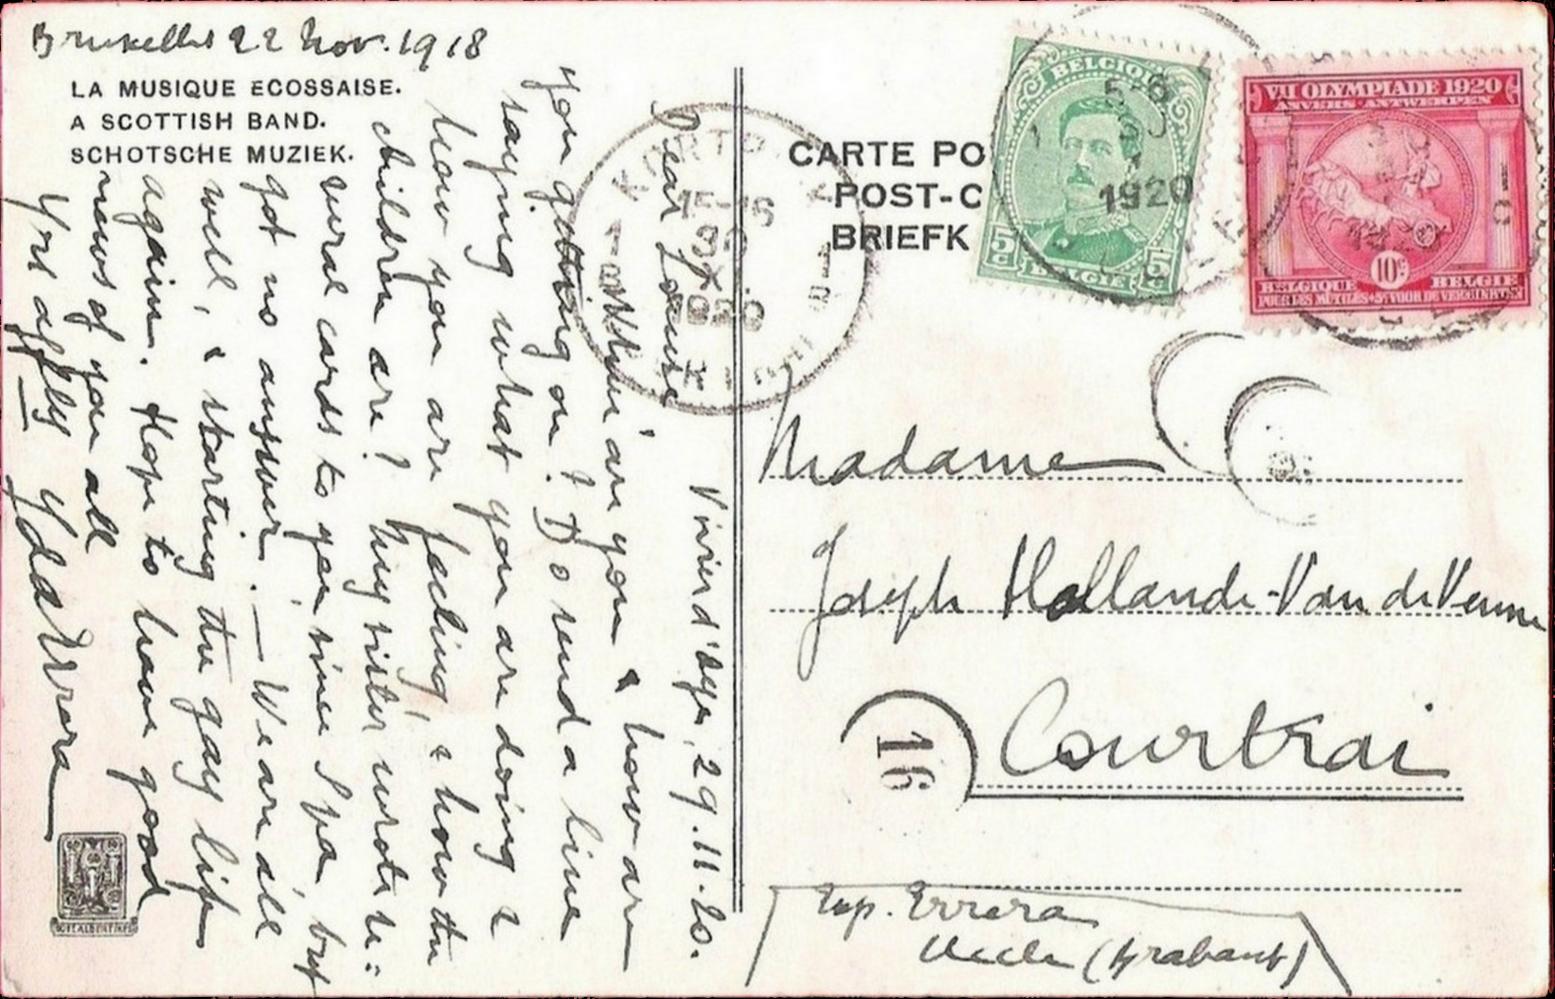 Bruxelles 22 Nov. 1918
LA MUSIQUE ECOSSAISE.
A SCOTTISH BAND.
SCHOTSCHE MUZIEK.
Vivier d'Oye, 29.11.20.
Dear Louise
Where are you & how are
you getting on? Do send a line
saying what you are doing &
how you are feeling, & how the
children are? My sister wrote se=
veral cards to you since Spa but
got no answer. — We are all
well, & starting the gay life
again. Hope to have good
news of you all
Yrs affly Yda Errera
CARTE PO
POST-C
BRIEFK
BELGIQUE
5c 5c
BELGIË
1920
VII OLYMPIADE 1920
ANVERS-ANTWERPEN
10c
BELGIQUE BELGIE
POUR LES MUTILÉS +5c VOOR DE VERMINKTEN
KORTR
15-16
30
X
1920
Madame
Joseph Hollande-Van de Venne
Courtrai
16
Exp. Errera
Uccle (Brabant)